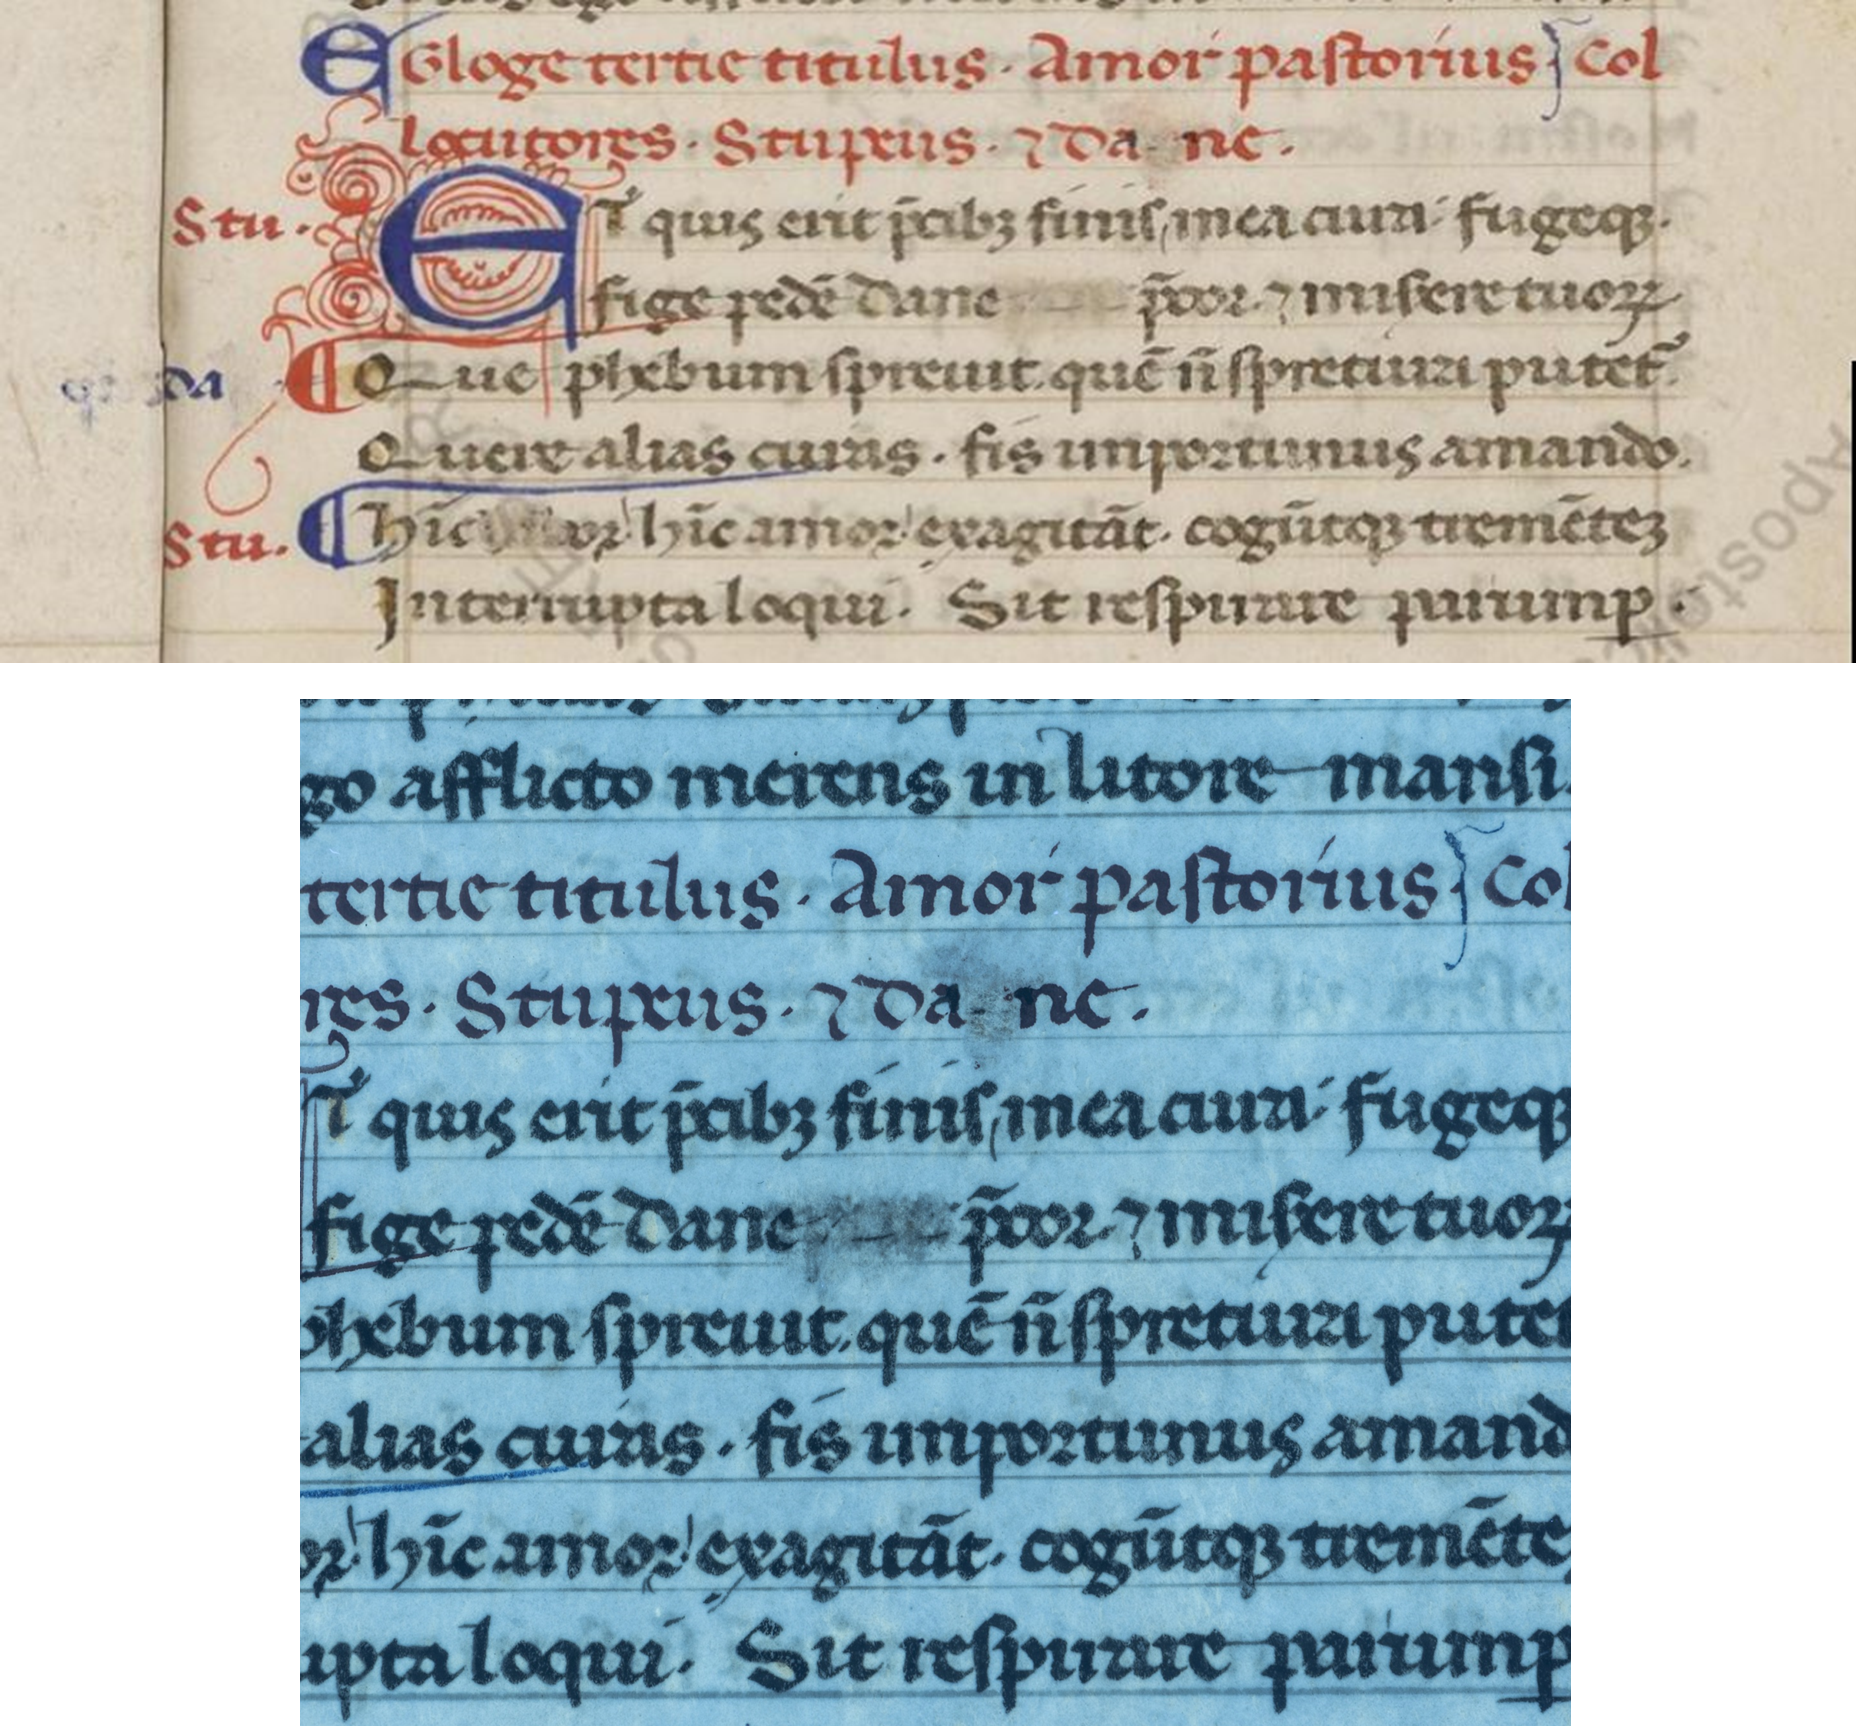 EGloge tertie titulus · Amor pastorius Col
locutores · Stupeus · ⁊ Da ne ·
Stu · ET quis erit p̄cib₃ finis, mea cura fugeq₃ ·
fige pedē dane p̄cor · ⁊ miserere tuoꝝ
da Que phebum spreuit . quē n̄ spretura putet̄ ·
Querere alias curas · sis importunus amando ·
Stu · hīc amor hīc amor exagitāt · cogūtq₃ tremēte₃
Interrupta loqui · Sit respirare parumꝑ ·
go afflicto merens in litore mansi ·
tertie titulus · Amor pastorius Col
res · Stupeus · ⁊ Da ne ·
T quis erit p̄cib₃ finis, mea cura fugeq₃
fige pedē dane p̄cor · ⁊ miserere tuoꝝ
phebum spreuit . quē n̄ spretura putet
alias curas · sis importunus amand
or hīc amor exagitāt · cogūtq₃ tremēte
upta loqui · Sit respirare parumꝑ